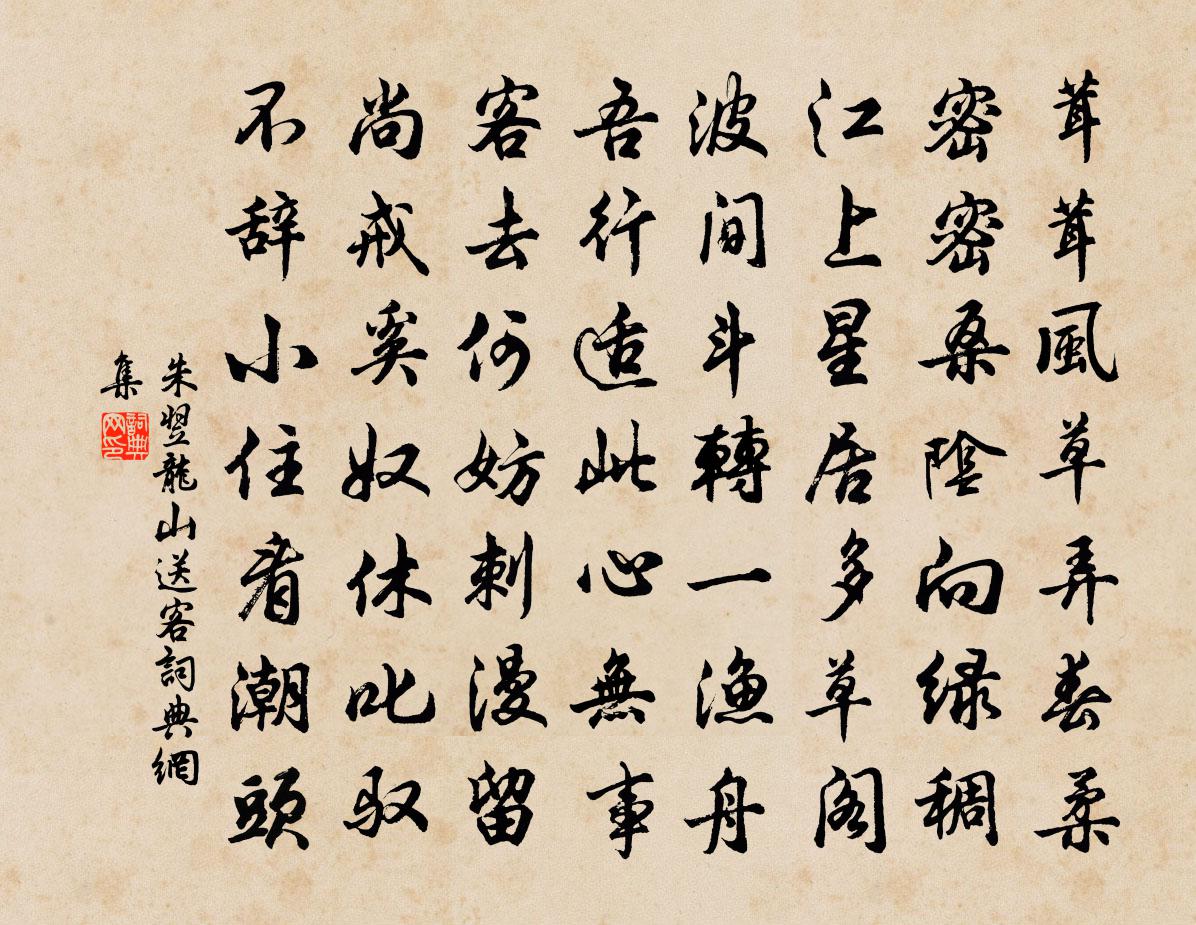 茸茸風草弄春柔
密密桑陰向緑稠
江上星居多草閣
波間斗轉一漁舟
吾行适此心無事
客去何妨刺漫留
尚戒奚奴休叱馭
不辞小住看潮頭
朱翌龍山送客詞典網
集
詞典网印